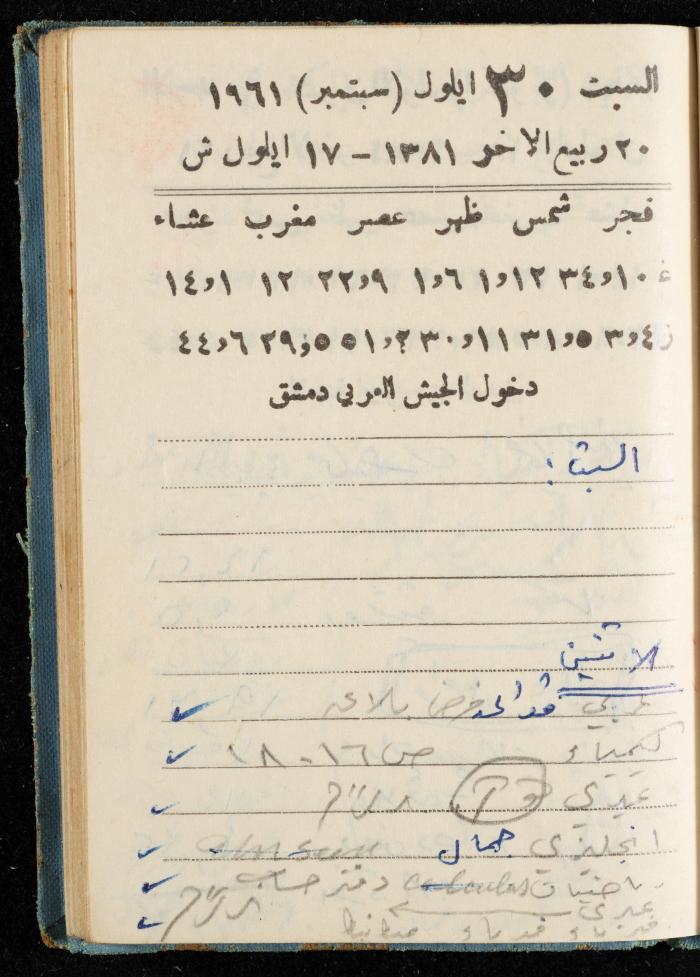 السبت ٣٠ ايلول (سبتمبر) ١٩٦١
٢٠ ربيع الاخر ١٣٨١ – ١٧ ايلول ش
فجر شمس ظهر عصر مغرب عشاء
غ ١٠و٣٤ ١٢و١ ٦و١ ٩و٢٢ ١٢ ١و١٤
ز ٤و٣ ٥و٣١ ١١و٣٠ ٢و٥١ ٥و٢٩ ٦و٤٤
دخول الجيش العربي دمشق
السبت :
الاثنين
عربي قواعد فرض بلاغه
كيمياء ص ١٦ - ١٨
عبري
انجليزي جمال
رياضيات calculus دفتر حساب
عبري
فيزياء